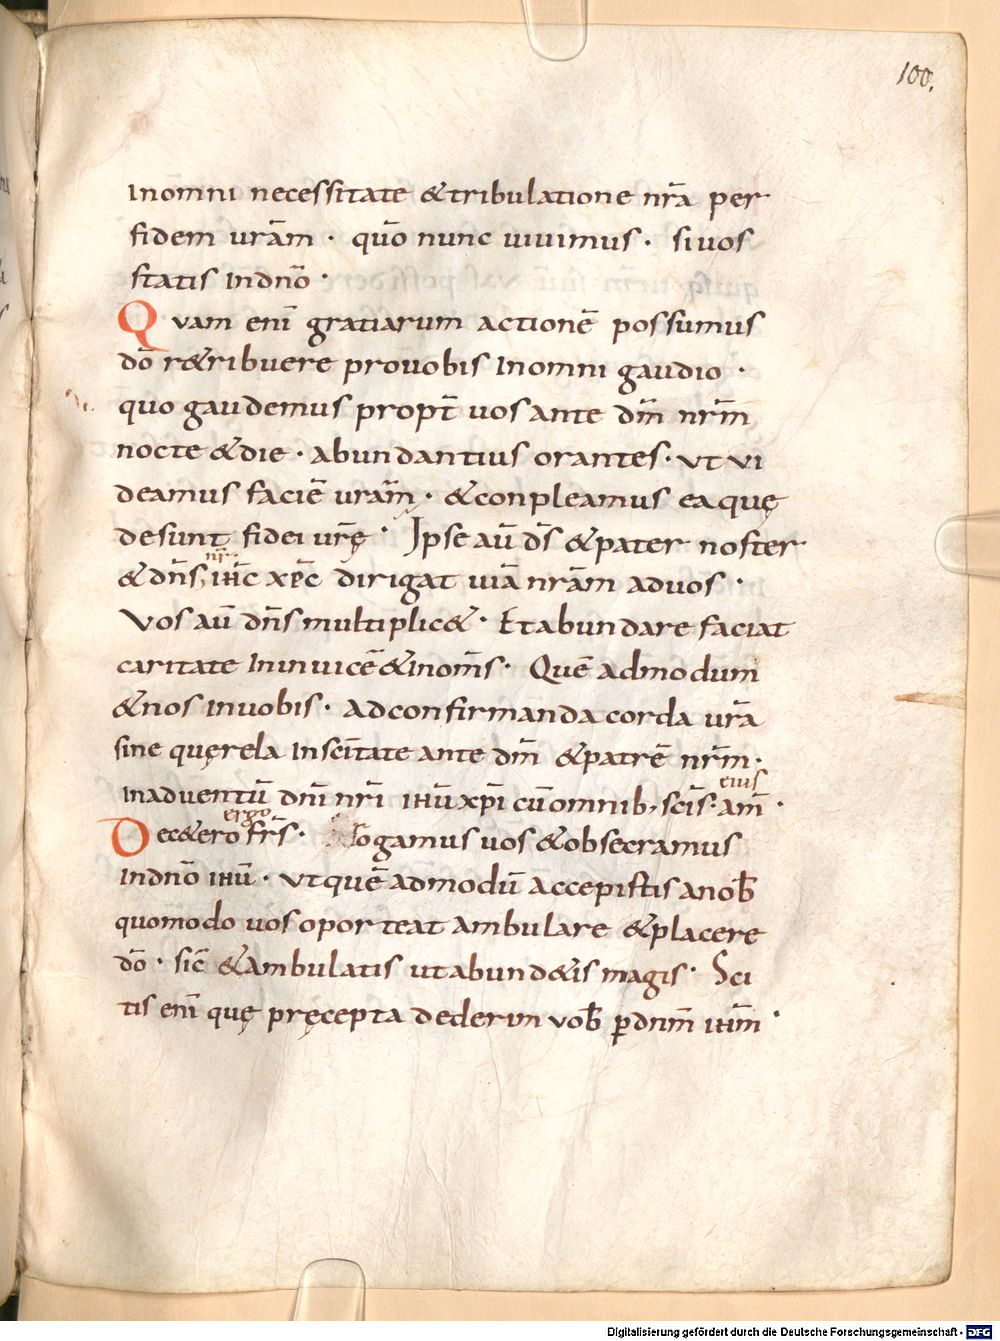 100.
Inomni necessitate &tribulatione nr̄a per
fidem ur̄am · quō nunc uiuimus · siuos
statis Indnō ·
Quam enī gratiarum actionē possumus
dō r&ribuere prouobis Inomni gaudio ·
quo gaudemus propt̄ uos ante dm̄ nr̄m
nocte &die · abundantius orantes · ut ui
deamus faciē ur̄am · &conpleamus ea quę
desunt fidei ur̄ę · Ipse aū ds̄ &pater noster
nr̄
& dn̄s, ihc̄ xp̄c dirigat uiā nr̄am aduos ·
Vos aū dn̄s multiplic& · Et abundare faciat
caritate Ininuicē &inom̄s · Quē admodum
&nos Inuobis · adconfirmanda corda ur̄a
sine quęrela Insc̄itate ante dm̄ &patrē nr̄m ·
eius
Inaduentū dn̄i nr̄i ihū xp̄i cū omnib, sc̄is · am̄ ·
ergo
Dec&ero fr̄s · Rogamus uos &obsecramus
Indnō ihū · Vtquē admodū accepistis anob̄
quomodo uos oporteat ambulare &placere
dō · sic̄ &ambulatis utabund&is magis · Sci
tis enī quę pręcepta dederim uob̄ p̄dnm̄ ihm̄ ·
Digitalisierung gefördert durch die Deutsche Forschungsgemeinschaft - DFG